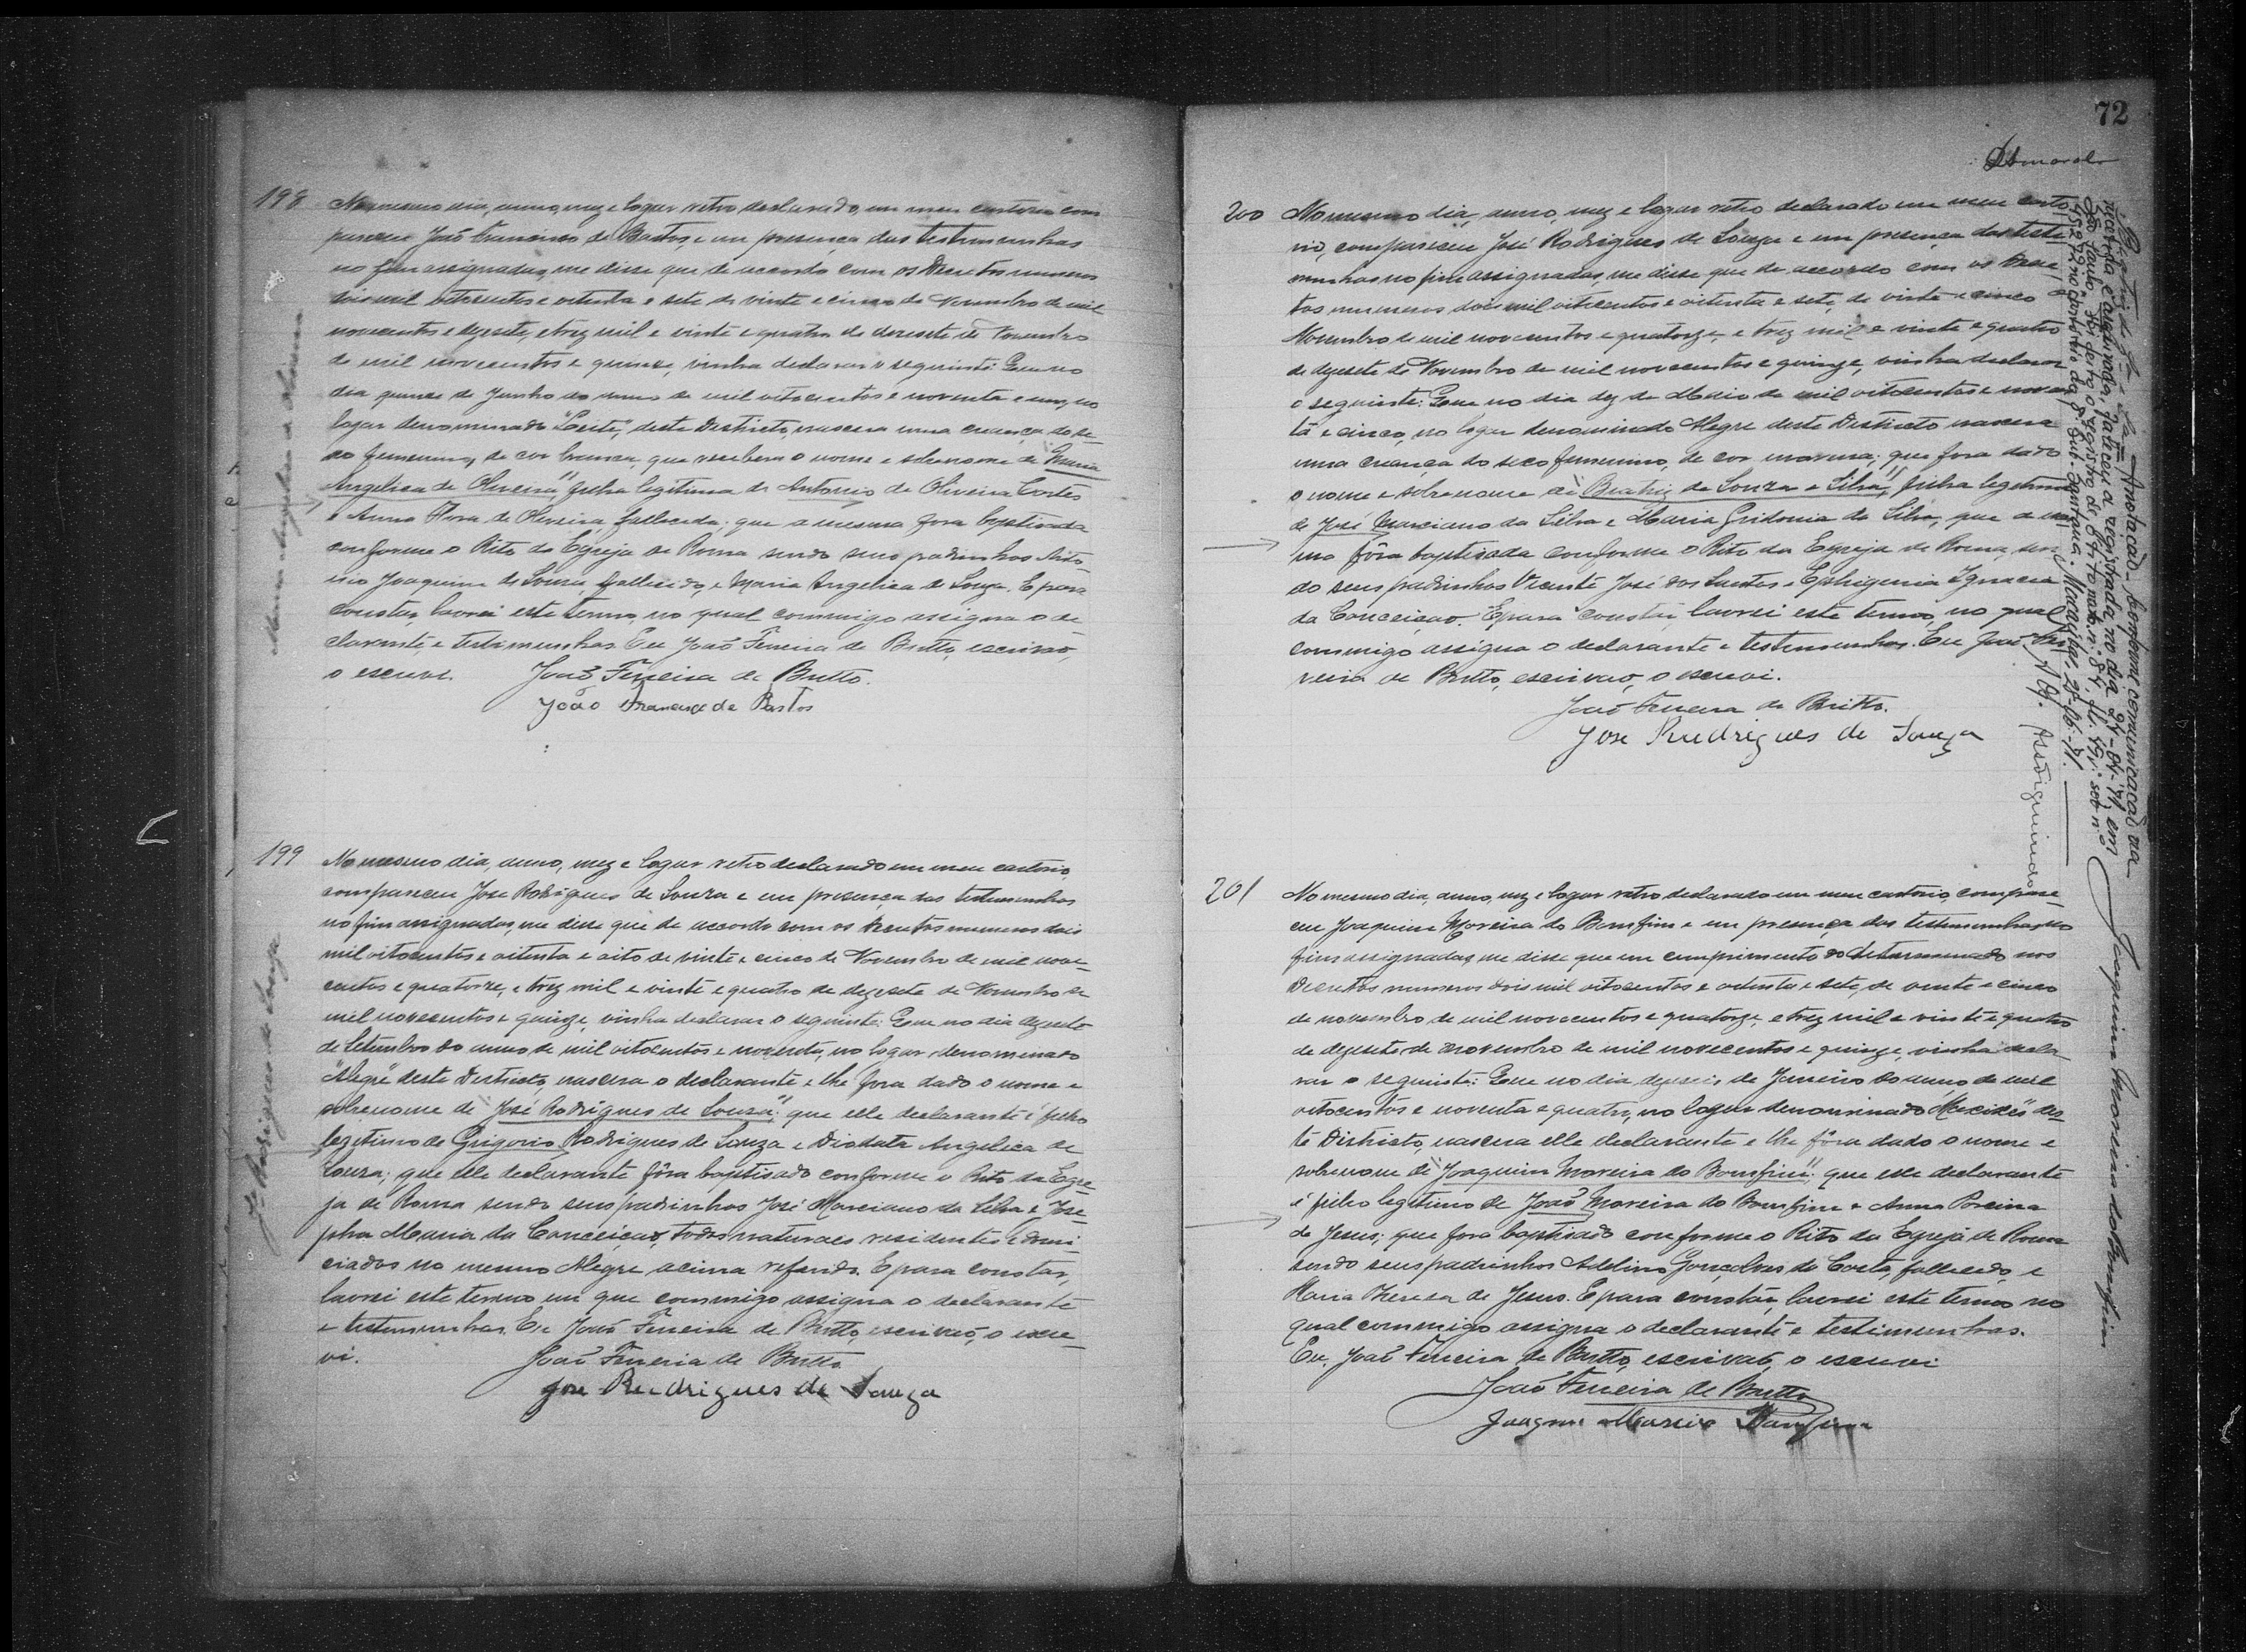 198 No mesmo dia, anno, mez e logar retro declarado, em meu cartorio com
pareceu João Francisco de Bastos, e em presença das testemunhas
no fim assignadas, me disse que de accordo com os Decretos numeros
dois mil oitocentos e oitenta e sete de vinte e cinco de Novembro de mil
novecentos e dezesete, e trez mil e vinte e quatro de dezesete de Novembro
de mil novecentos e quinze, vinha declarar o seguinte: Que no
dia quinze de Junho do anno de mil oitocentos e noventa e um, no
logar denominado "Leite", deste Districto, nascera uma creança do se-
xo femenino, de cor branca, que recebera o nome e sobrenome de "Maria
Angelica de Oliveira" filha legitima de Antonio de Oliveira Cortes
e Anna Flora de Oliveira, fallecida; que a mesma fora baptisada
conforme o Rito da Egreja de Roma sendo seus padrinhos Anto
nio Joaquim de Souza, fallecido, e Maria Angelica de Souza. E para
constar, lavrei este termo, no qual commigo assigna o de
clarante, e testemunhas. Eu João Ferreira de Britto, escrivão,
o escrevi. João Ferreira de Britto.
João Francisco de Bastos
Maria Angelica de Oliveira
199 No mesmo dia, anno, mez e logar retro declarado em meu cartorio,
compareceu José Rodrigues de Souza e em presença das testemunhas
no fim assignadas, me disse que de accordo com os Decretos numeros dois
mil oitocentos e oitenta e oito de vinte e cinco de Novembro de mil nove-
centos e quatorze, e trez mil e vinte e quatro de dezesete de Novembro de
mil novecentos e quinze, vinha declarar o seguinte: Que no dia dezoito
de Setembro do anno de mil oitocentos e noventa, no logar denominado
"Alegre" deste Districto, nascera o declarante e lhe fora dado o nome e
sobrenome de "José Rodrigues de Souza": que elle declarante é filho
legitimo de Grigorio Rodrigues de Souza e Diodata Angelica de
Souza; que elle declarante fôra baptisado conforme o Rito da Egre-
ja de Roma sendo seus padrinhos José Marciano da Silva e Jose-
pha Maria da Conceição, todos naturaes residentes e domi-
ciados no mesmo Alegre acima referido. E para constar,
lavrei este termo em que commigo assigna o declarante
e testemunhas. Eu João Ferreira de Britto, escrivão, o escre-
vi. João Ferreira de Britto
Jose Rudrigues de Souza
Je. Rodrigues de Souza
72
200 No mesmo dia, anno, mez e logar retro declarado em meu carto
rio, compareceu José Rodrigues de Souza e em presença das teste
munhas no fim assignadas, me disse que de accordo com os Decre
tos numeros dois mil oitocentos e oitenta e sete, de vinte e cinco de
Novembro de mil novecentos e quatorze, e trez mil e vinte e quatro
de dezesete de Novembro de mil novecentos e quinze, vinha declarar
o seguinte: Que no dia dez de Maio de mil oitocentos e noven
ta e cinco, no logar denominado Alegre deste Districto nascera
uma creança do sexo femenino, de cor morena; que fora dado
o nome e sobrenome de "Beatriz de Souza e Silva", filha legitima
de José Marciano da Silva e Maria Gridonia da Silva, que a mes
ma fôra baptisada conforme o Rito da Egreja de Roma, sen
do seus padrinhos Vicente José dos Santos e Ephigenia Ignacia
da Conceição. E para constar, lavrei este termo, no qual
commigo assigna o declarante e testemunhas. Eu João Fer
reira de Britto, escrivão, o escrevi.
João Ferreira de Britto.
Jose Rudrigues de Souza
Anotação - Conforme comunicação
201 No mesmo dia, anno, mez e logar retro declarado em meu cartorio, compare-
ceu Joaquim Moreira do Bomfim e em presença das testemunhas no
fim assignadas, me disse que em cumprimento do determinado nos
Decretos numeros dois mil oitocentos e oitenta e sete, de vinte e cinco
de novembro de mil novecentos e quatorze, e trez mil e vinte e quatro
de dezesete de novembro de mil novecentos e quinze, vinha decla
rar o seguinte: Que no dia dezeseis de Janeiro do anno de mil
oitocentos e noventa e quatro, no logar denominado des
te Districto, nascera elle declarante e lhe fôra dado o nome e
sobrenome de "Joaquim Moreira do Bomfim": que elle declarante
é filho legitimo de João Moreira do Bomfim e Anna Porcina
de Jesus; que fora baptisado conforme o Rito da Egreja de Roma
sendo seus padrinhos Adelino Gonçalves da Costa, fallecido, e
Maria Thereza de Jesus. E para constar, lavrei este termo no
qual commigo assigna o declarante e testemunhas.
Eu, João Ferreira de Britto, escrivão, o escrevi
João Ferreira de Britto
Joaquim Moreira Bomfim
Joaquim Moreira do Bomfim